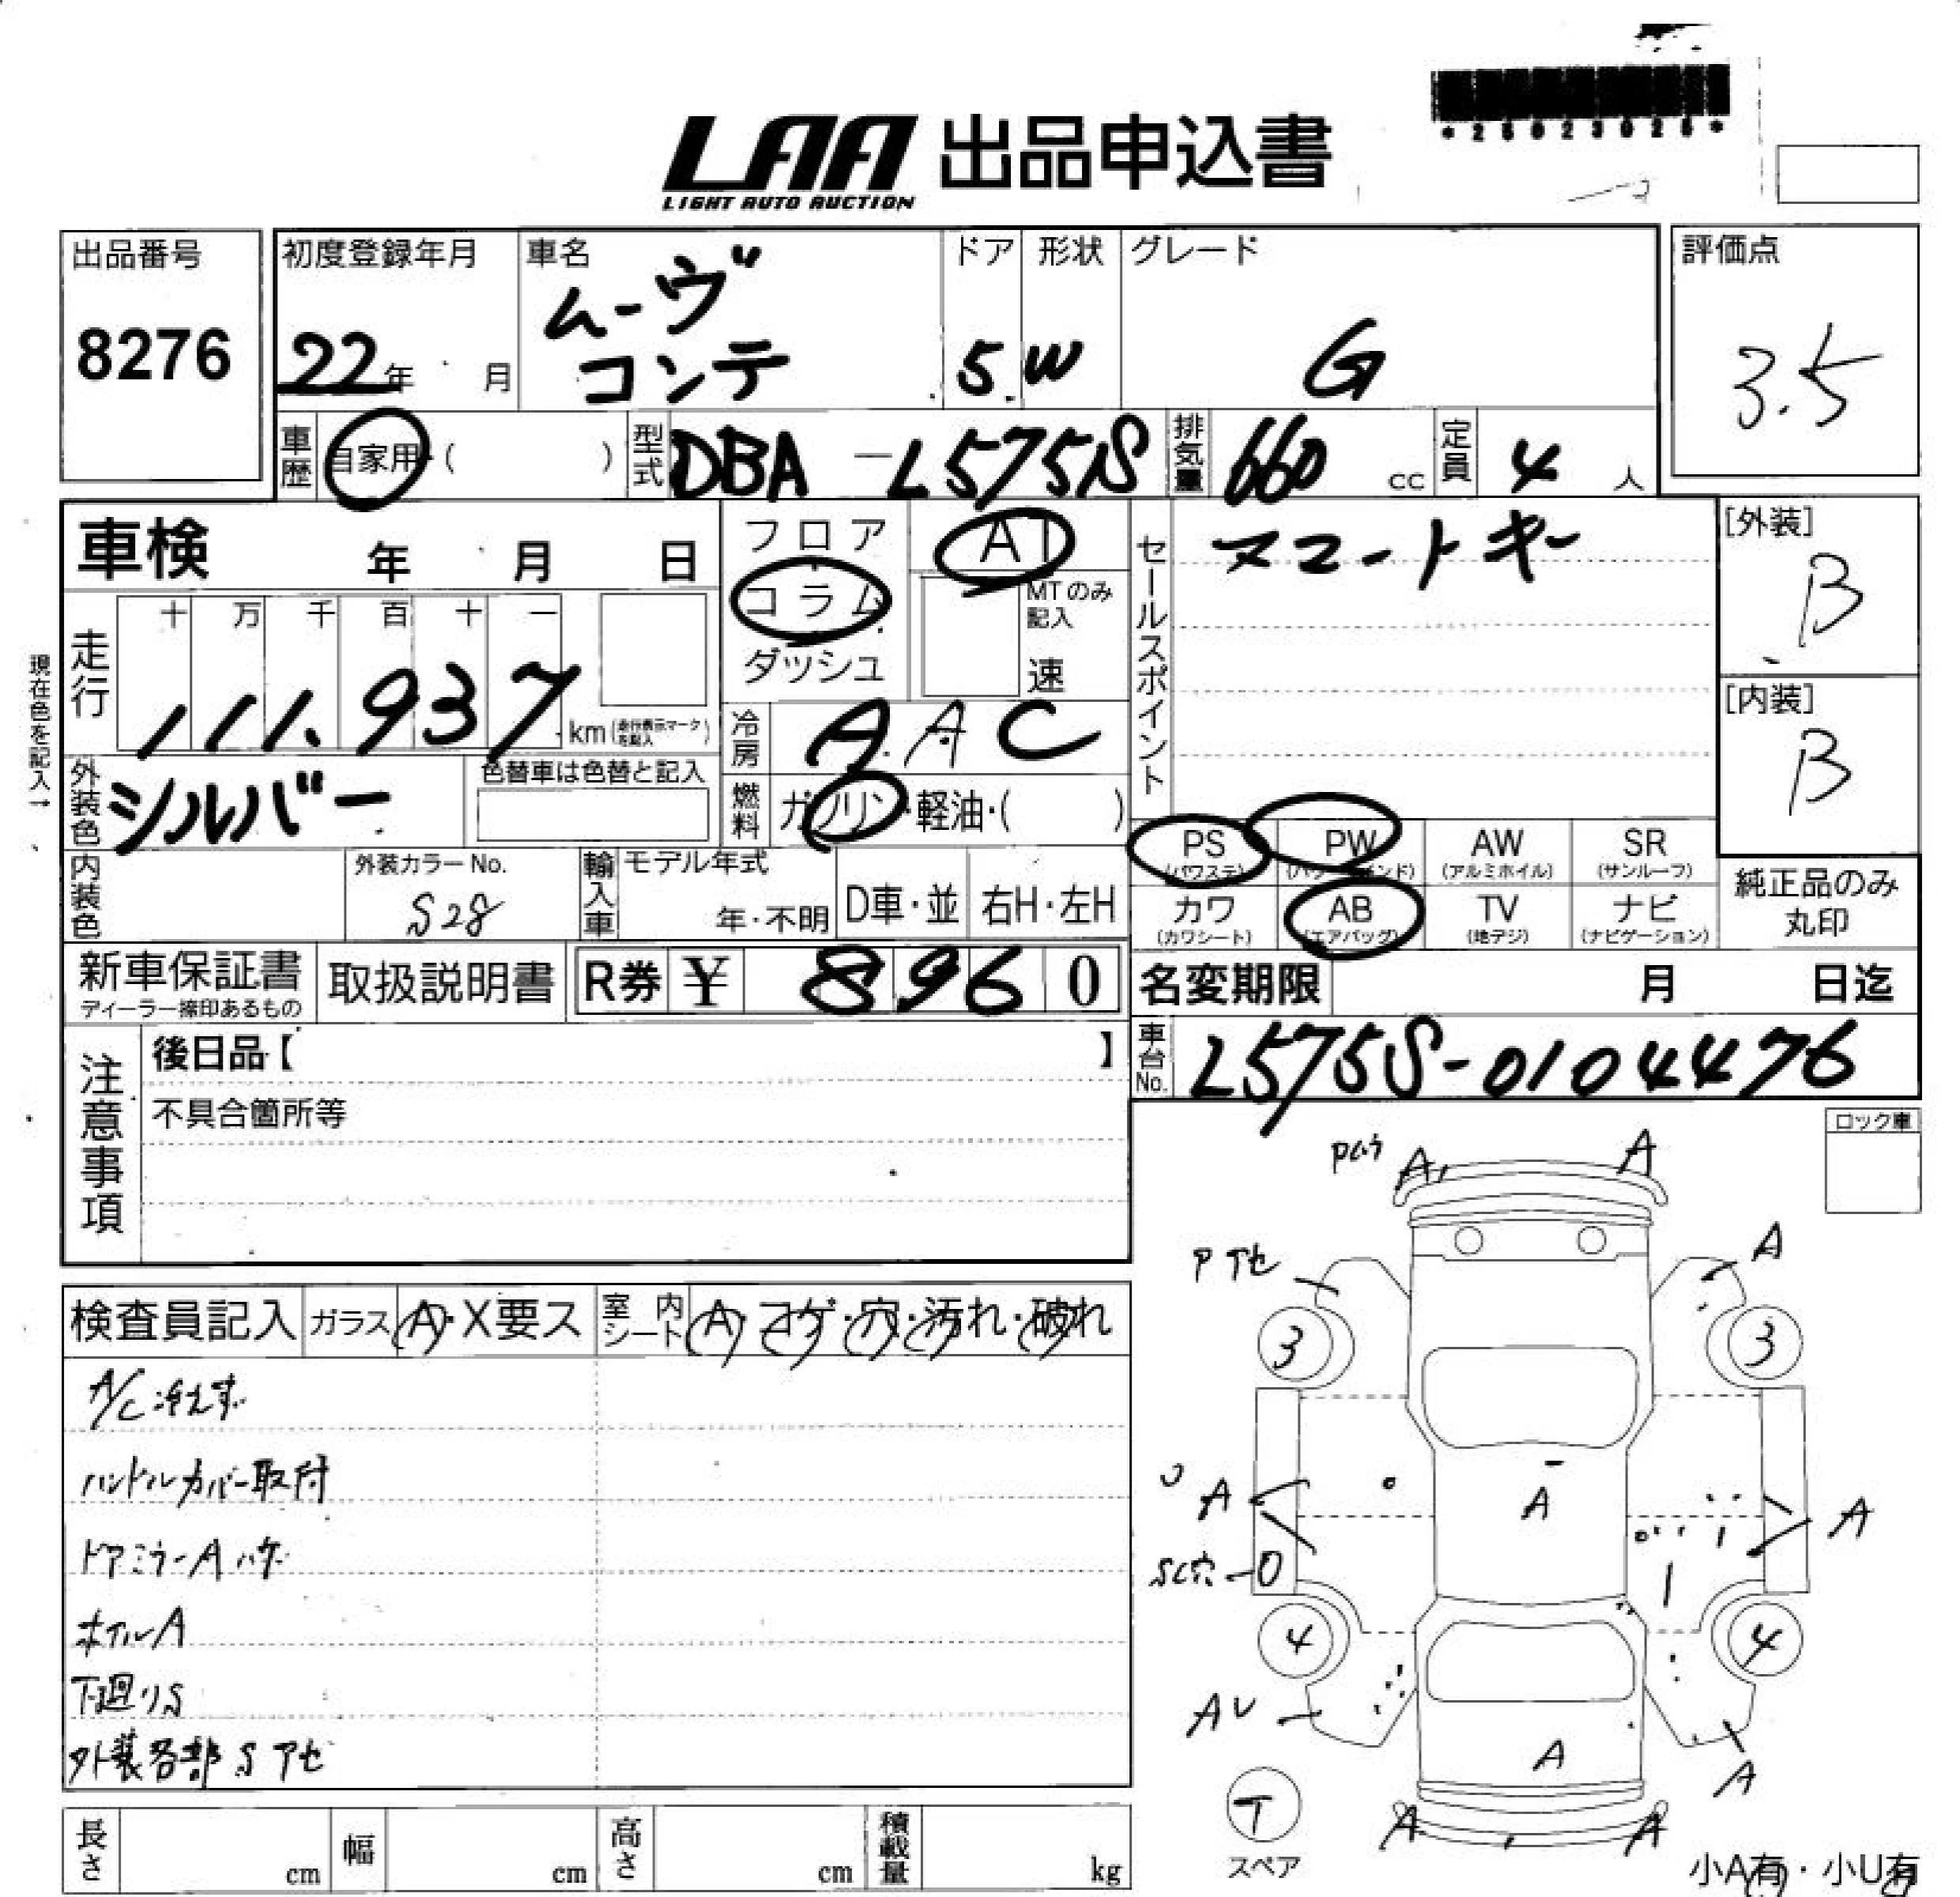 LAA 出品申込書
LIGHT AUTO AUCTION
出品番号
8276
初度登録年月
22年 月
車名
ムーヴ
コンテ
ドア
5
形状
W
グレード
G
評価点
3.5
車歴
自家用・( )
型式
DBA-L575S
排気量
660 cc
定員
4 人
車検 年 月 日
フロア
コラム
ダッシュ
AT
MTのみ
記入
速
セールスポイント
スマートキー
[外装]
B
[内装]
B
現在色を記入→
走行
十 万 千 百 十 一
111,937
km (走行表示マークを記入)
冷房
AAC
外装色
シルバー
色替車は色替と記入
燃料
ガソリン・軽油・( )
PS
(パワステ)
PW
(パワーウインド)
AW
(アルミホイル)
SR
(サンルーフ)
カワ
(カワシート)
AB
(エアバッグ)
TV
(地デジ)
ナビ
(ナビゲーション)
純正品のみ
丸印
内装色
外装カラーNo.
S28
輸入車
モデル年式
年・不明
D車・並
右H・左H
新車保証書
ディーラー捺印あるもの
取扱説明書
R券 ¥ 8960
名変期限 月 日迄
車台No.
L575S-0104476
注意事項
後日品【 】
不具合箇所等
ロック車
検査員記入
ガラス
A・X要ス
室内シート
A・コゲ・穴・汚れ・破れ
A/C冷えず
ハンドルカバー取付
ドアミラーAハゲ
ホイルA
下廻りS
外装各部Sアセ
Pムラ
A
A
Pアセ
A
3
3
A
A
A
SC穴
4
4
AU
A
A
T
スペア
A
A
小A有・小U有
長さ
cm
幅
cm
高さ
cm
積載量
kg